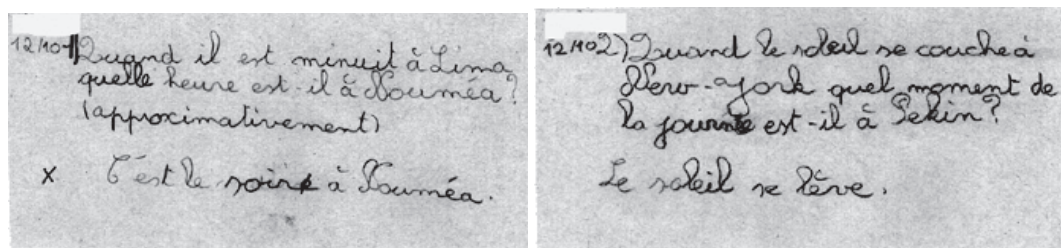 12/10 1) Quand il est minuit à Lima
quelle heure est-il à Nouméa?
(approximativement)
x C'est le soire à Nouméa.
12/10 2) Quand le soleil se couche à
New-york quel moment de
la journée est-il à Pekin?
Le soleil se lève.